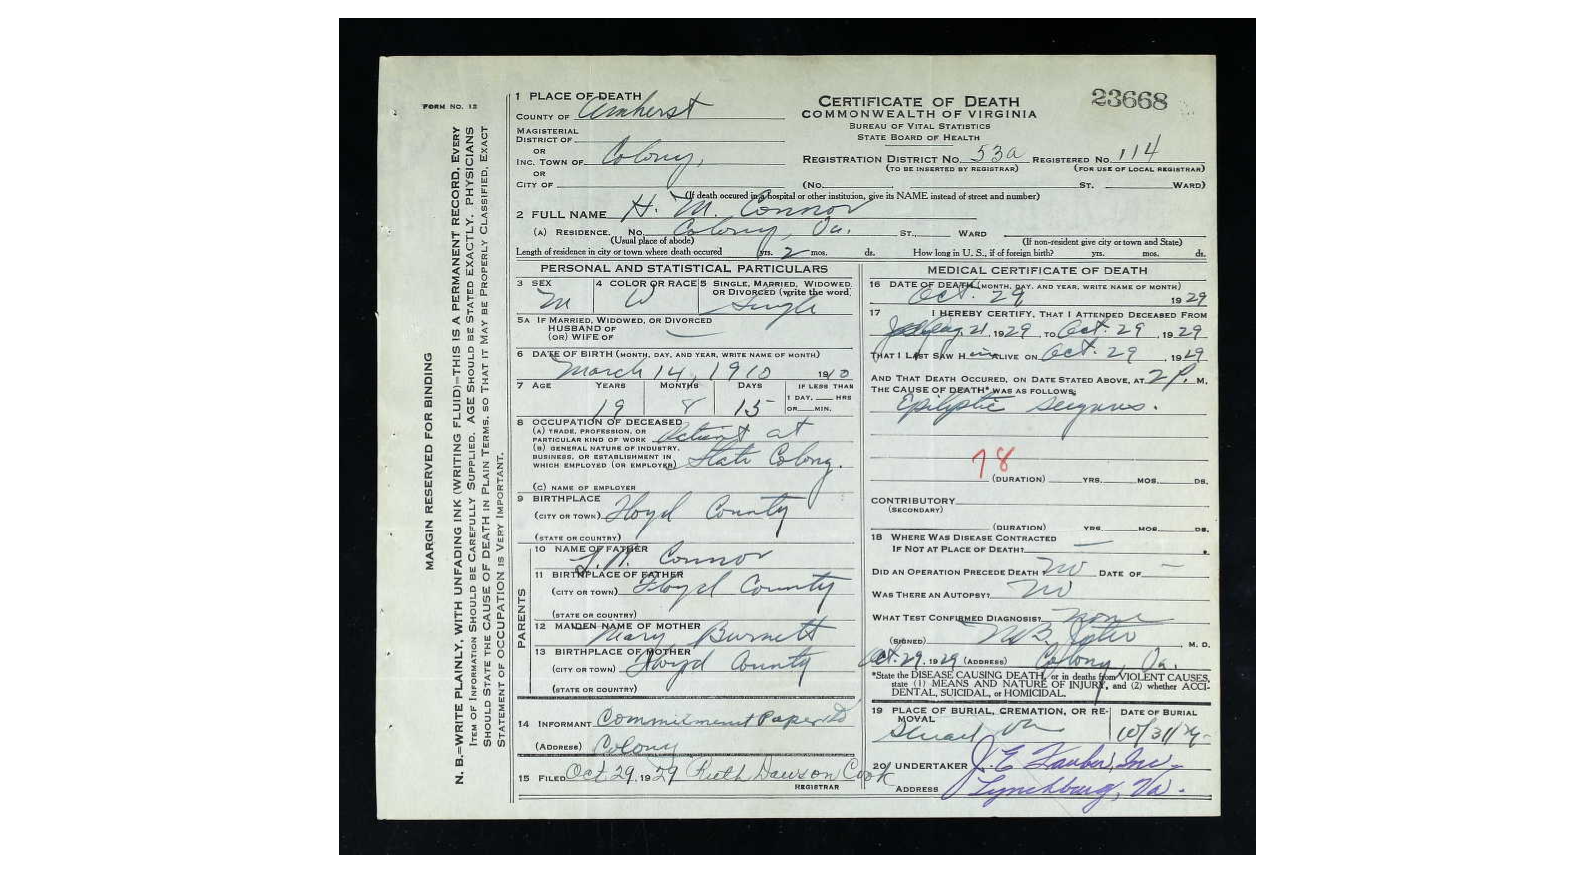 FORM NO. 12
MARGIN RESERVED FOR BINDING
N. B.—WRITE PLAINLY, WITH UNFADING INK (WRITING FLUID)—THIS IS A PERMANENT RECORD. EVERY
ITEM OF INFORMATION SHOULD BE CAREFULLY SUPPLIED. AGE SHOULD BE STATED EXACTLY. PHYSICIANS
SHOULD STATE THE CAUSE OF DEATH IN PLAIN TERMS, SO THAT IT MAY BE PROPERLY CLASSIFIED. EXACT
STATEMENT OF OCCUPATION IS VERY IMPORTANT.
1 PLACE OF DEATH
COUNTY OF Amherst
MAGISTERIAL
DISTRICT OF
OR
INC. TOWN OF Colony,
OR
CITY OF
CERTIFICATE OF DEATH
COMMONWEALTH OF VIRGINIA
BUREAU OF VITAL STATISTICS
STATE BOARD OF HEALTH
23668
REGISTRATION DISTRICT NO. 53a REGISTERED NO. 114
(TO BE INSERTED BY REGISTRAR) (FOR USE OF LOCAL REGISTRAR)
(NO. ST. WARD)
(If death occured in a hospital or other institution, give its NAME instead of street and number)
2 FULL NAME H. M. Connor
(A) RESIDENCE. No. Colony, Va. ST., WARD
(Usual place of abode) (If non-resident give city or town and State)
Length of residence in city or town where death occured yrs. 2 mos. ds. How long in U. S., if of foreign birth? yrs. mos. ds.
PERSONAL AND STATISTICAL PARTICULARS
3 SEX M
4 COLOR OR RACE W
5 SINGLE, MARRIED, WIDOWED
OR DIVORCED (write the word)
Single
5A IF MARRIED, WIDOWED, OR DIVORCED
HUSBAND OF
(OR) WIFE OF
6 DATE OF BIRTH (MONTH, DAY, AND YEAR, WRITE NAME OF MONTH)
March 14, 1910 1910
7 AGE YEARS MONTHS DAYS IF LESS THAN
1 DAY, HRS
OR MIN.
19 8 15
8 OCCUPATION OF DECEASED
(A) TRADE, PROFESSION, OR
PARTICULAR KIND OF WORK Patient at
(B) GENERAL NATURE OF INDUSTRY,
BUSINESS, OR ESTABLISHMENT IN
WHICH EMPLOYED (OR EMPLOYER) State Colony.
(C) NAME OF EMPLOYER
9 BIRTHPLACE
(CITY OR TOWN) Floyd County
(STATE OR COUNTRY)
PARENTS
10 NAME OF FATHER
Connor
11 BIRTHPLACE OF FATHER
(CITY OR TOWN) Floyd County
(STATE OR COUNTRY)
12 MAIDEN NAME OF MOTHER
Mary Burnett
13 BIRTHPLACE OF MOTHER
(CITY OR TOWN) Floyd County
(STATE OR COUNTRY)
14 INFORMANT Commitment Papers
(ADDRESS) Colony
15 FILED Oct. 29, 1929 Ruth Dawson Cook
REGISTRAR
MEDICAL CERTIFICATE OF DEATH
16 DATE OF DEATH (MONTH, DAY, AND YEAR, WRITE NAME OF MONTH)
Oct. 29 1929
17 I HEREBY CERTIFY, THAT I ATTENDED DECEASED FROM
Aug. 21, 1929 TO Oct. 29, 1929
THAT I LAST SAW H im ALIVE ON Oct. 29, 1929
AND THAT DEATH OCCURED, ON DATE STATED ABOVE, AT 2 P. M.
THE CAUSE OF DEATH* WAS AS FOLLOWS:
Epileptic
78
(DURATION) YRS. MOS. DS.
CONTRIBUTORY
(SECONDARY)
(DURATION) YRS. MOS. DS.
18 WHERE WAS DISEASE CONTRACTED
IF NOT AT PLACE OF DEATH?
DID AN OPERATION PRECEDE DEATH No DATE OF —
WAS THERE AN AUTOPSY? No
WHAT TEST CONFIRMED DIAGNOSIS? none
(SIGNED) M. D.
Oct. 29, 1929 (ADDRESS) Colony, Va.
*State the DISEASE CAUSING DEATH, or in deaths from VIOLENT CAUSES,
state (1) MEANS AND NATURE OF INJURY, and (2) whether ACCI-
DENTAL, SUICIDAL, or HOMICIDAL.
19 PLACE OF BURIAL, CREMATION, OR RE-
MOVAL
Stuart Va
DATE OF BURIAL
10/31/29
20 UNDERTAKER J. E. Inc.
ADDRESS Lynchburg, Va.